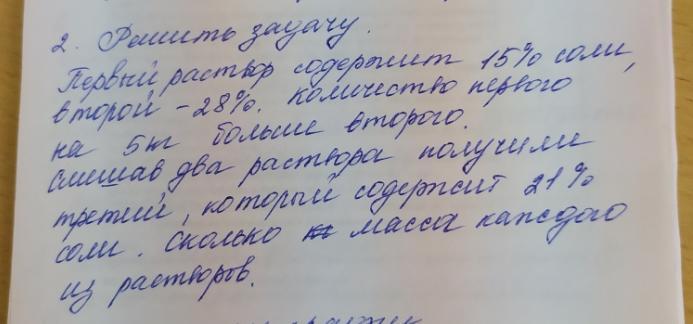 2. Решить задачу.
Первый раствор содержит 15% соли,
второй - 28%. Количество первого
на 5кг больше второго.
Смешав два раствора получили
третий, который содержит 21%
соли. Сколько масса каждого
из растворов.